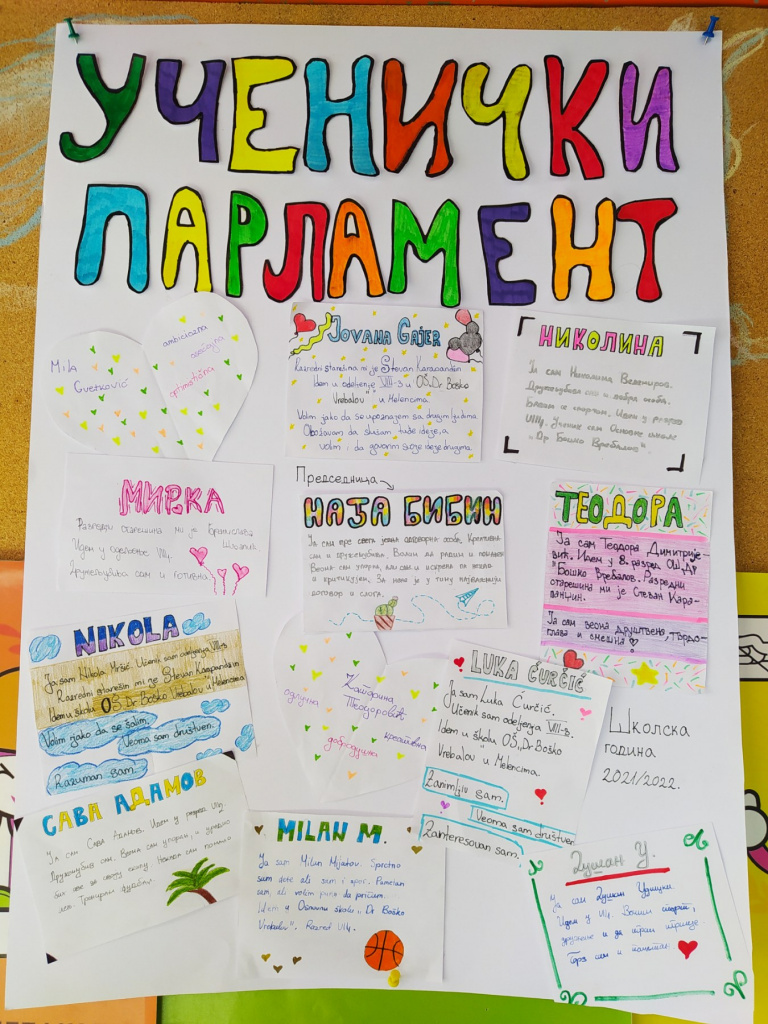 УЧЕНИЧКИ
ПАРЛАМЕНТ
Mila
Cvetković
ambiciozna
osećajna
optimistična
JOVANA GAJER
Razredni starešina mi je Stevan Karapandžin
Idem u odeljenje VIII-3 u OŠ„Dr Boško
Vrebalov" u Melencima
Volim jako da se upoznajem sa drugim ljudima
Obožavam da slušam tuđe ideje, a
volim i da govorim svoje ideje drugima
НИКОЛИНА
Ја сам Николина
Дружељубива сам и добра особа.
Бавим се спортом. Идем у разред
VIII4. Ученик сам Основне школе
„Др Бошко Вребалов".
МИРКА
Разредни старешина ми је Братислава
Идем у одељење VIII4.
Дружељубива сам и
Председница
НАЈА БИБИН
Ја сам пре свега једна одговорна особа. Креативна
сам и дружељубива. Волим да радим и помажем
Веома сам упорна, али сам и искрена па некада
и критикујем. За мене је у тиму најважнији
договор и слога.
ТЕОДОРА
Ја сам Теодора Димитрије-
вић. Идем у 8. разред ОШ „Др
Бошко Вребалов". Разредни
старешина ми је Стеван Кара-
панџин.
Ја сам веома друштвена, тврдо-
глава и смешна
NIKOLA
Ja sam Nikola Mršić. Učenik sam odeljenja VIII-3.
Razredni starešin mi je Stevan Karapandžin
Idem u školu OŠ„Dr Boško Vrebalov" u Melencima
Volim jako da se šalim.
Veoma sam društven.
Razuman sam.
одлучна
Катарина
Теодоровић
креативна
добродушна
LUKA ĆURČIĆ
Ja sam Luka Ćurčić.
Učenik sam odeljenja VIII-3.
Idem u školu OŠ„Dr Boško
Vrebalov" u Melencima.
Zanimljiv sam.
Veoma sam društven
Zainteresovan sam.
Школска
година
2021/2022.
САВА АДАМОВ
Ја сам Сава Адамов. Идем у разред VIII2
Дружељубив сам. Веома сам упоран, и урадио
бих све за своју екипу. Након сам помало
лењ. Тренирам фудбал.
MILAN M.
Ja sam Milan Mijatov. Sportsko
sam dete ali sam i spor. Pametan
sam, ali volim puno da pričam.
Idem u Osnovnu školu „Dr Boško
Vrebalov". Razred VIII4.
Душан У.
Ја сам Душан
Идем у VIII4. Волим спорт,
дружење и да играм игрице
сам и паметан.